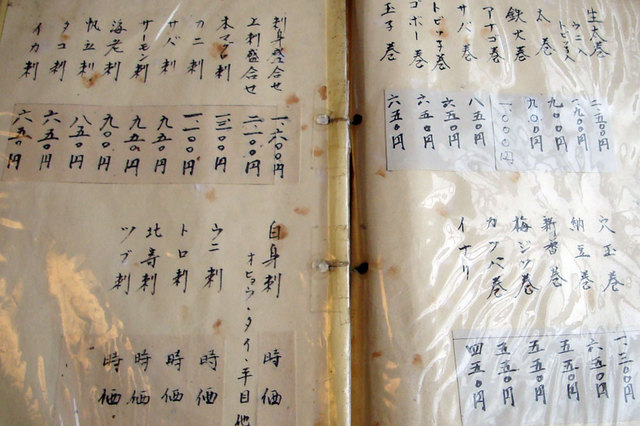 生太巻 二、五〇〇円
ウニ入
トビッコ入 一、九〇〇円
太巻 九〇〇円
鉄火巻 九〇〇円
アナゴ巻 一、〇〇〇円
サバ巻 八五〇円
トビッコ巻 六五〇円
ゴボー巻 六五〇円
玉子巻 六五〇円
穴玉巻 一、二〇〇円
納豆巻 六五〇円
新香巻 五五〇円
梅ジソ巻 五五〇円
カッパ巻 五五〇円
イナリ 四五〇円
刺身盛合せ 一、六〇〇円
上刺盛合せ 二、一〇〇円
本マグロ刺 一、三〇〇円
カニ刺 一、一〇〇円
サバ刺 九五〇円
サーモン刺 九五〇円
海老刺 九〇〇円
帆立刺 八五〇円
タコ刺 六五〇円
イカ刺 六五〇円
白身刺 時価
オヒョウ・タイ・平目他
ウニ刺 時価
トロ刺 時価
北寄刺 時価
ツブ刺 時価